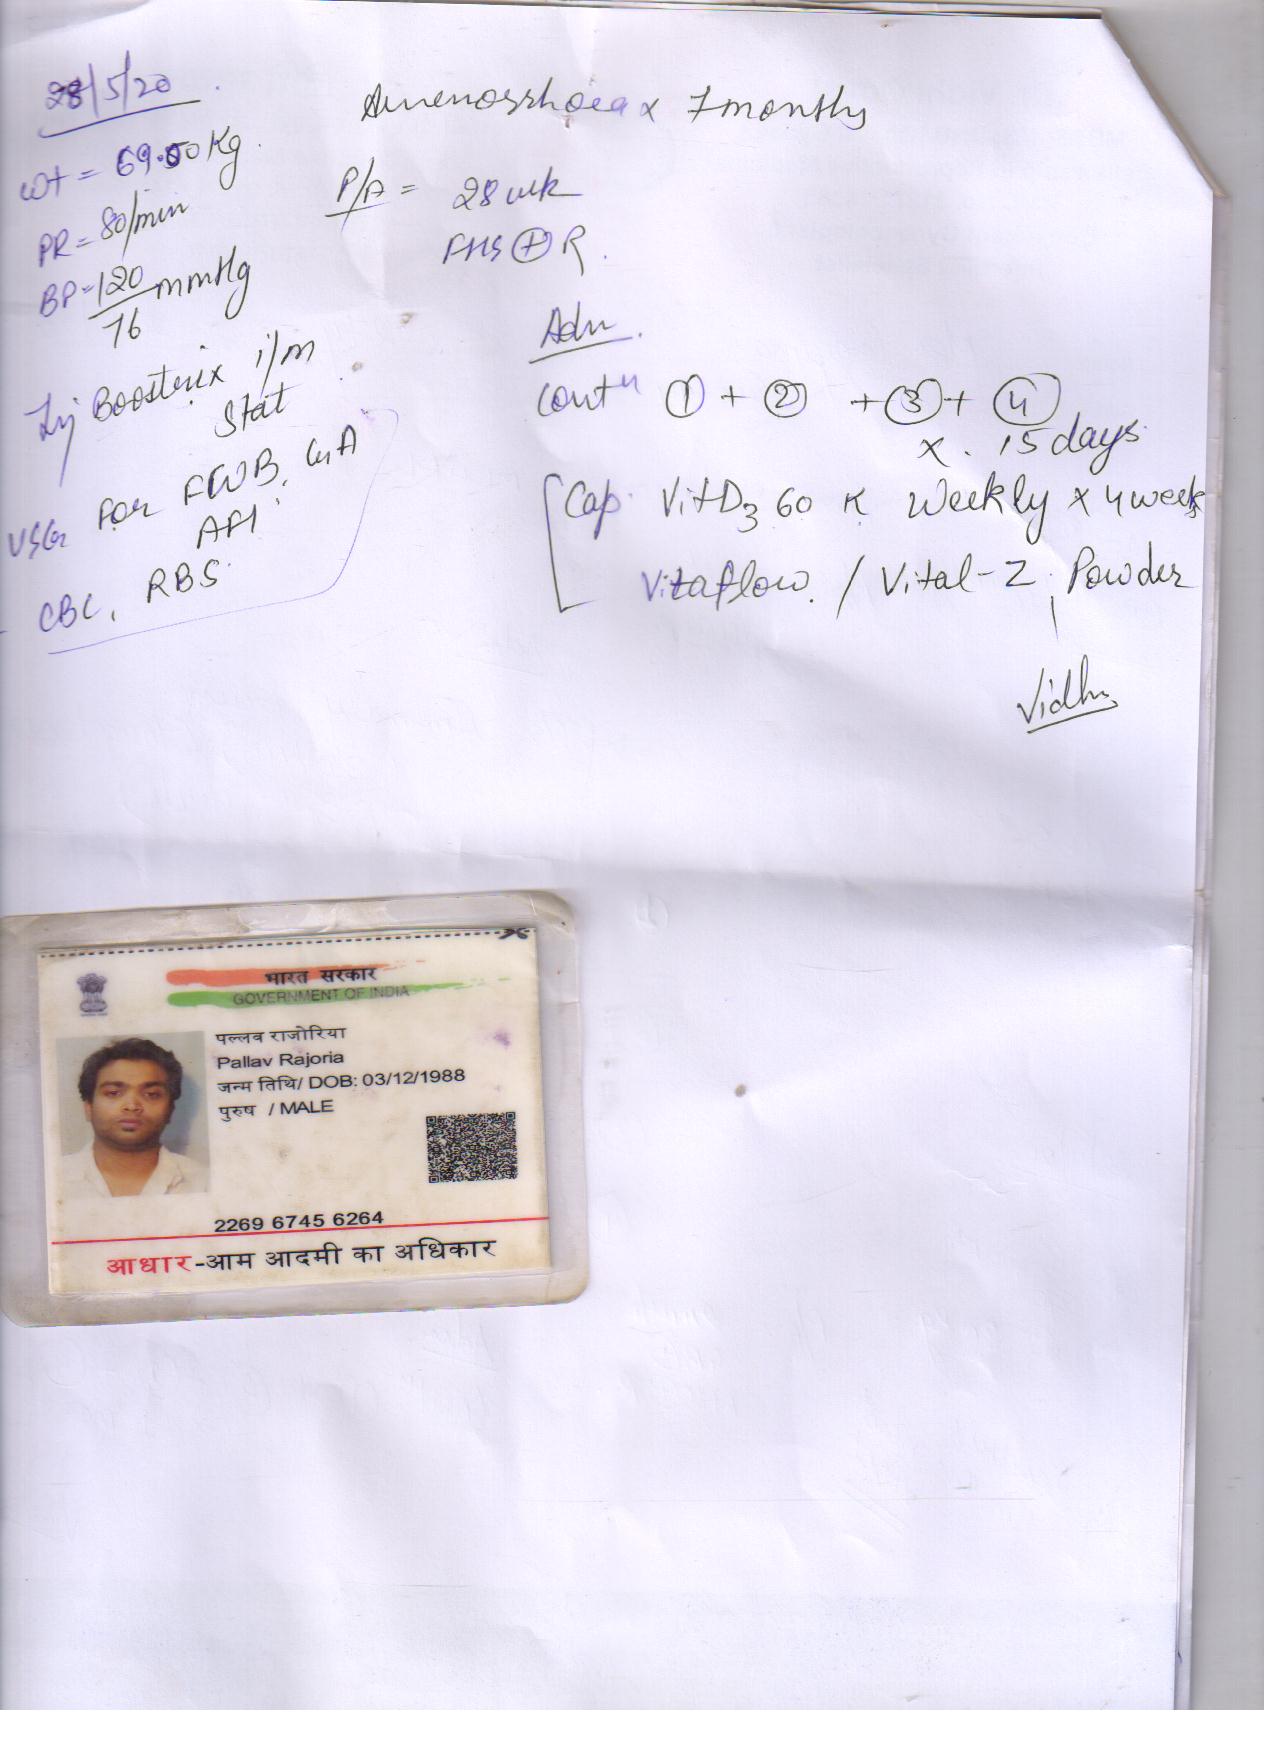 28/5/20
Amenorrhoea x 7 months
wt = 69.50 Kg.
PR = 80/min
BP = 120/76 mmHg
P/A = 28 wk
FHS ⊕ R.
Inj Boosterix i/m
Stat
USG for FWB, GA
AFI
CBC, RBS
Adv.
Contn ① + ② + ③ + ④
x. 15 days
Cap. VitD3 60 K Weekly x 4 weeks
Vitaflow. / Vital-Z Powder
Vidhu
भारत सरकार
GOVERNMENT OF INDIA
पल्लव राजोरिया
Pallav Rajoria
जन्म तिथि/ DOB: 03/12/1988
पुरुष / MALE
2269 6745 6264
आधार-आम आदमी का अधिकार